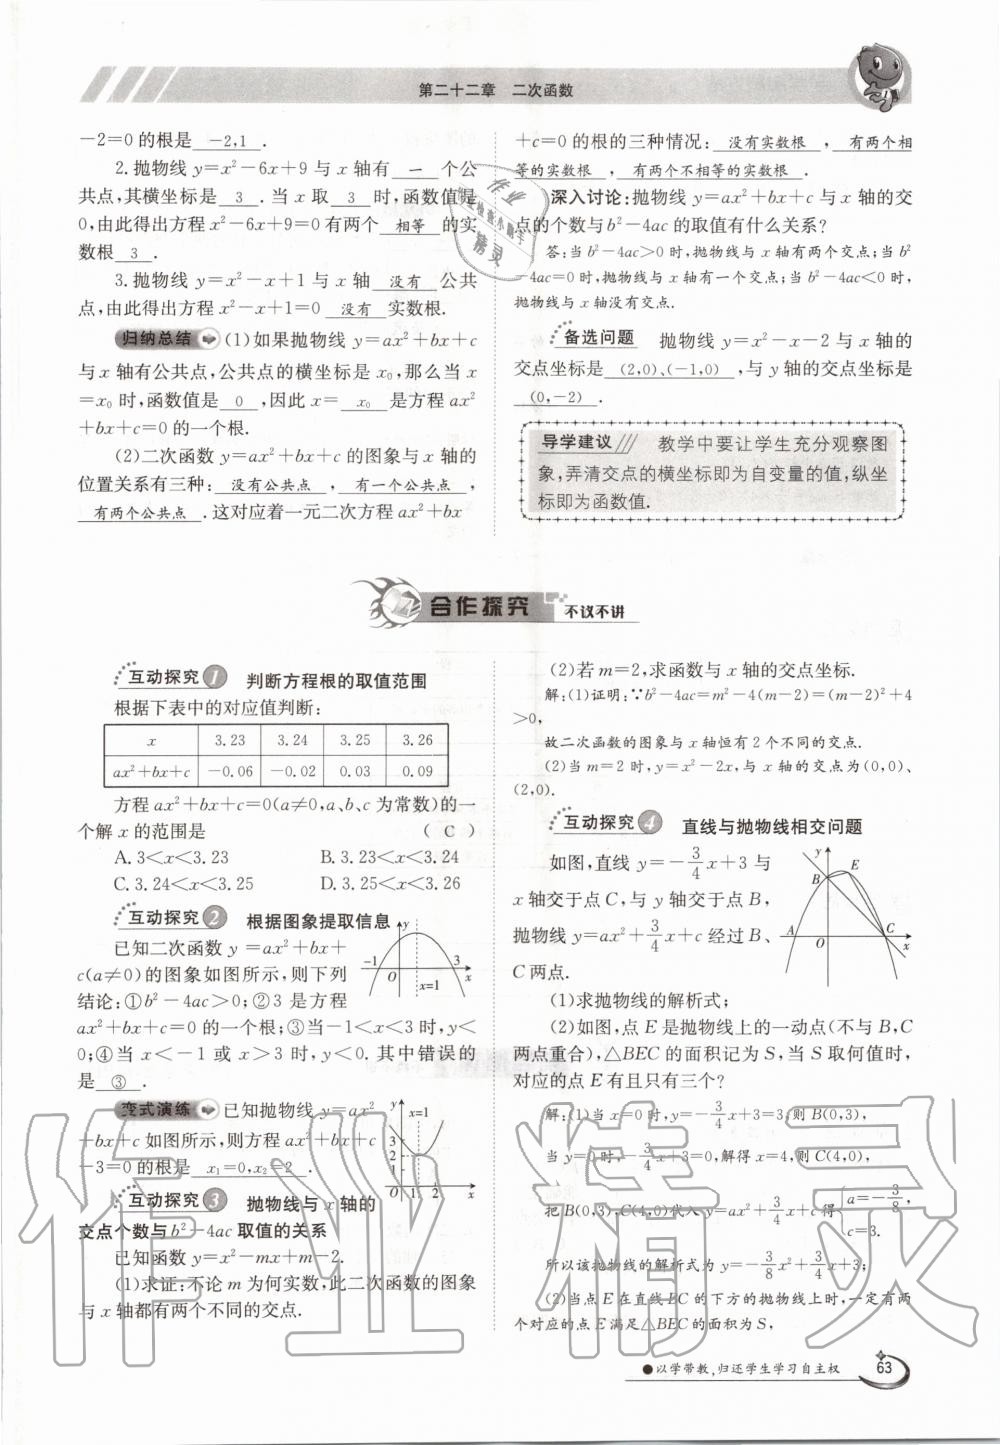 第二十二章 二次函数
－2=0的根是 －2,1 .
2.抛物线y=x²－6x+9与x轴有 一 个公
共点,其横坐标是 3 .当x取 3 时,函数值是
0,由此得出方程x²－6x+9=0有两个 相等 的实
数根 3 .
3.抛物线y=x²－x+1与x轴 没有 公共
点,由此得出方程x²－x+1=0 没有 实数根.
归纳总结 (1)如果抛物线y=ax²+bx+c
与x轴有公共点,公共点的横坐标是x₀,那么当x
=x₀时,函数值是 0 ,因此x= x₀ 是方程ax²
+bx+c=0的一个根.
(2)二次函数y=ax²+bx+c的图象与x轴的
位置关系有三种: 没有公共点 , 有一个公共点 ,
有两个公共点 .这对应着一元二次方程ax²+bx
+c=0的根的三种情况: 没有实数根 , 有两个相
等的实数根 , 有两个不相等的实数根 .
深入讨论:抛物线y=ax²+bx+c与x轴的交
点的个数与b²－4ac的取值有什么关系?
答:当b²－4ac>0时,抛物线与x轴有两个交点;当b²
－4ac=0时,抛物线与x轴有一个交点;当b²－4ac<0时,
抛物线与x轴没有交点.
备选问题 抛物线y=x²－x－2与x轴的
交点坐标是 (2,0)、(－1,0) ,与y轴的交点坐标是
(0,－2) .
导学建议 教学中要让学生充分观察图
象,弄清交点的横坐标即为自变量的值,纵坐
标即为函数值.
合作探究 不议不讲
互动探究1 判断方程根的取值范围
根据下表中的对应值判断:
x 3.23 3.24 3.25 3.26
ax²+bx+c －0.06 －0.02 0.03 0.09
方程ax²+bx+c=0(a≠0,a、b、c为常数)的一
个解x的范围是 ( C )
A.3<x<3.23 B.3.23<x<3.24
C.3.24<x<3.25 D.3.25<x<3.26
互动探究2 根据图象提取信息
已知二次函数y=ax²+bx+
c(a≠0)的图象如图所示,则下列
结论:①b²－4ac>0;②3是方程
ax²+bx+c=0的一个根;③当－1<x<3时,y<
0;④当x<－1或x>3时,y<0.其中错误的
是 ③ .
y
－1 O 3 x
x=1
变式演练 已知抛物线y=ax²
+bx+c如图所示,则方程ax²+bx+c
－3=0的根是 x₁=0,x₂=2 .
y x=1
3
2
1
O 1 2 x
互动探究3 抛物线与x轴的
交点个数与b²－4ac取值的关系
已知函数y=x²－mx+m－2.
(1)求证:不论m为何实数,此二次函数的图象
与x轴都有两个不同的交点.
(2)若m=2,求函数与x轴的交点坐标.
解:(1)证明:∵b²－4ac=m²－4(m－2)=(m－2)²+4
>0,
故二次函数的图象与x轴恒有2个不同的交点.
(2)当m=2时,y=x²－2x,与x轴的交点为(0,0)、
(2,0).
互动探究4 直线与抛物线相交问题
如图,直线y=－3/4x+3与
x轴交于点C,与y轴交于点B,
抛物线y=ax²+3/4x+c经过B、
C两点.
y
B E
A O C x
(1)求抛物线的解析式;
(2)如图,点E是抛物线上的一动点(不与B,C
两点重合),△BEC的面积记为S,当S取何值时,
对应的点E有且只有三个?
解:(1)当x=0时,y=－3/4x+3=3,则B(0,3),
当y=0时,－3/4x+3=0,解得x=4,则C(4,0),
把B(0,3),C(4,0)代入y=ax²+3/4x+c得{a=－3/8,
c=3.
所以该抛物线的解析式为y=－3/8x²+3/4x+3;
(2)当点E在直线BC的下方的抛物线上时,一定有两
个对应的点E满足△BEC的面积为S,
●以学带教,归还学生学习自主权 63
作业精灵